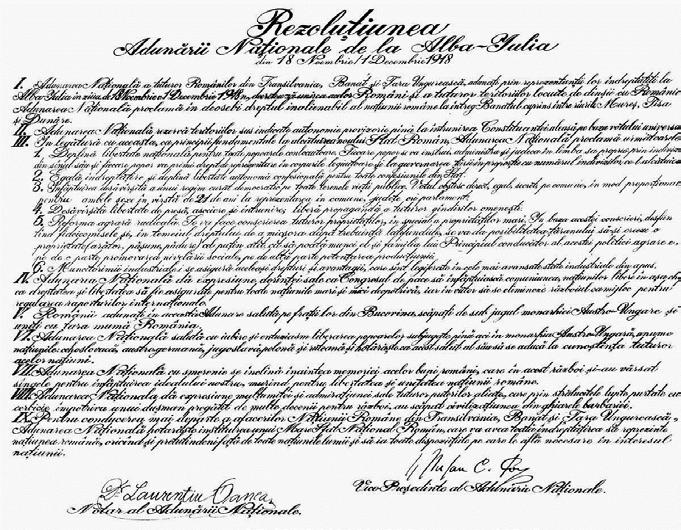 Rezoluțiunea
Adunării Naționale de la Alba-Iulia
din 18 Noiembrie/1 Decembrie 1918
I. Adunarea Națională a tuturor Românilor din Transilvania, Banat și Țara Ungurească, adunați prin reprezentanții lor îndreptățiți la
Alba-Iulia în ziua de 18 Noiembrie/1 Decembrie 1918, unirea acelor Români și a tuturor teritoriilor locuite de dânșii cu România.
Adunarea Națională proclamă în deosebi dreptul inalienabil al națiunii române la întreg Banatul cuprins între râurile Mureș, Tisa
și Dunăre.
II. Adunarea Națională rezervă teritoriilor sus indicate autonomie provizorie până la întrunirea Constituantei aleasă pe baza votului universal
III. În legătură cu aceasta, ca principii fundamentale la alcătuirea noului Stat Român, Adunarea Națională proclamă următoarele
1. Deplină libertate națională pentru toate popoarele conlocuitoare. Fiecare popor se va instrui, administra și judeca în limba sa proprie prin indivizi
din sânul său și fiecare popor va primi drept de reprezentare în corpurile legiuitoare și la guvernarea țării în proporție cu numărul indivizilor ce-l alcătuiesc
2. Egală îndreptățire și deplină libertate autonomă confesională pentru toate confesiunile din Stat.
3. Înfăptuirea desăvârșită a unui regim curat democratic pe toate terenele vieții publice. Votul obștesc, direct, egal, secret, pe comune, în mod proporțional,
pentru ambele sexe în vârstă de 21 de ani la reprezentarea în comune, județe ori parlament.
4. Desăvârșită libertate de presă, asociere și întrunire, liberă propagandă a tuturor gândirilor omenești.
5. Reforma agrară radicală. Se va face conscrierea tuturor proprietăților, în special a proprietăților mari. În baza acestei conscrieri, desființând
fideicomisele și, în temeiul dreptului de a micșora după trebuință latifundiile, se va da posibilitatea țăranului să-și creeze o
proprietate (arător, pășune, pădure) cel puțin atât cât să poată munci el și familia lui. Principiul conducător al acestei politici agrare e
pe de o parte promovarea nivelării sociale, pe de altă parte potențarea producțiunii.
6. Muncitorimii industriale i se asigură aceleași drepturi și avantagii, care sunt legiferate în cele mai avansate state industriale din apus.
IV. Adunarea Națională dă expresiune dorinței sale ca Congresul de pace să înfăptuiască comuniunea națiunilor libere în așa chip,
ca dreptatea și libertatea să fie asigurate pentru toate națiunile mari și mici deopotrivă, iar în viitor să se elimineze războiul ca mijloc pentru
regularea raporturilor internaționale.
V. Românii adunați în această Adunare salută pe frații lor din Bucovina, scăpați de sub jugul monarhiei Austro-Ungare și
uniți cu țara mumă România.
VI. Adunarea Națională salută cu iubire și entusiasm liberarea popoarelor subjugate până aci în monarhia Austro-Ungară, anume
națiunile: cehoslovacă, austrogermană, jugoslavă, polonă și ruteană și hotărăște ca acest salut al său să se aducă la cunoștința tuturor
acelor națiuni.
VII. Adunarea Națională cu smerenie se închină înaintea memoriei acelor bravi români, care în acest război și-au vărsat
sângele pentru înfăptuirea idealului nostru, murind pentru libertatea și unitatea națiunii române.
VIII. Adunarea Națională dă expresiune mulțumitei și admirațiunei sale tuturor puterilor aliate, care prin strălucitele lupte, purtate cu
cerbicie împotriva unui dușman pregătit de multe decenii pentru război, au scăpat civilizațiunea din ghiarele barbariei.
IX. Pentru conducerea mai departe a afacerilor Națiunii Române din Transilvania, Banat și Țara Ungurească,
Adunarea Națională hotărăște instituirea unui Mare Sfat Național Român, care va avea toată îndreptățirea să reprezinte
națiunea română, oricând și pretutindeni față de toate națiunile lumii și să ia toate dispozițiile pe care le află necesare în interesul
națiunii.
Ștefan C. Pop
Vice Președinte al Adunării Naționale.
Dr. Laurențiu Oanea
Notar al Adunării Naționale.